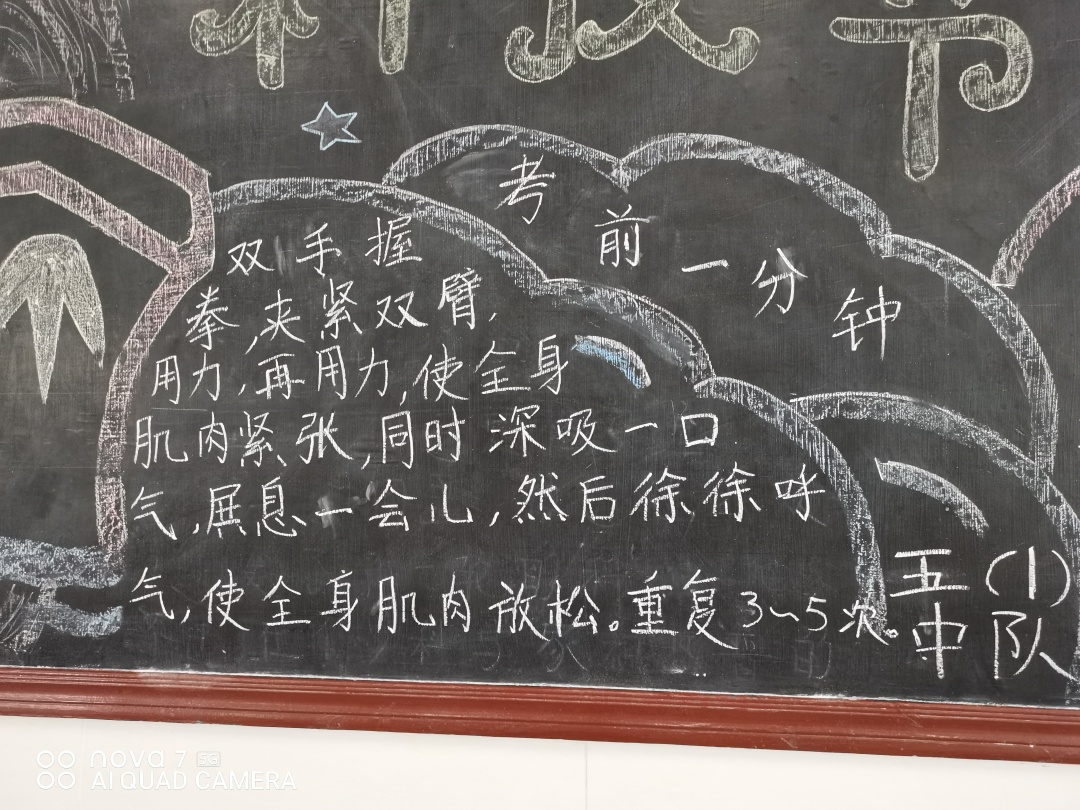 科技节
考前一分钟
双手握
拳,夹紧双臂,
用力,再用力,使全身
肌肉紧张,同时深吸一口
气,屏息一会儿,然后徐徐呼
气,使全身肌肉放松。重复3~5次。
五(1)
中队
nova 7 5G
AI QUAD CAMERA